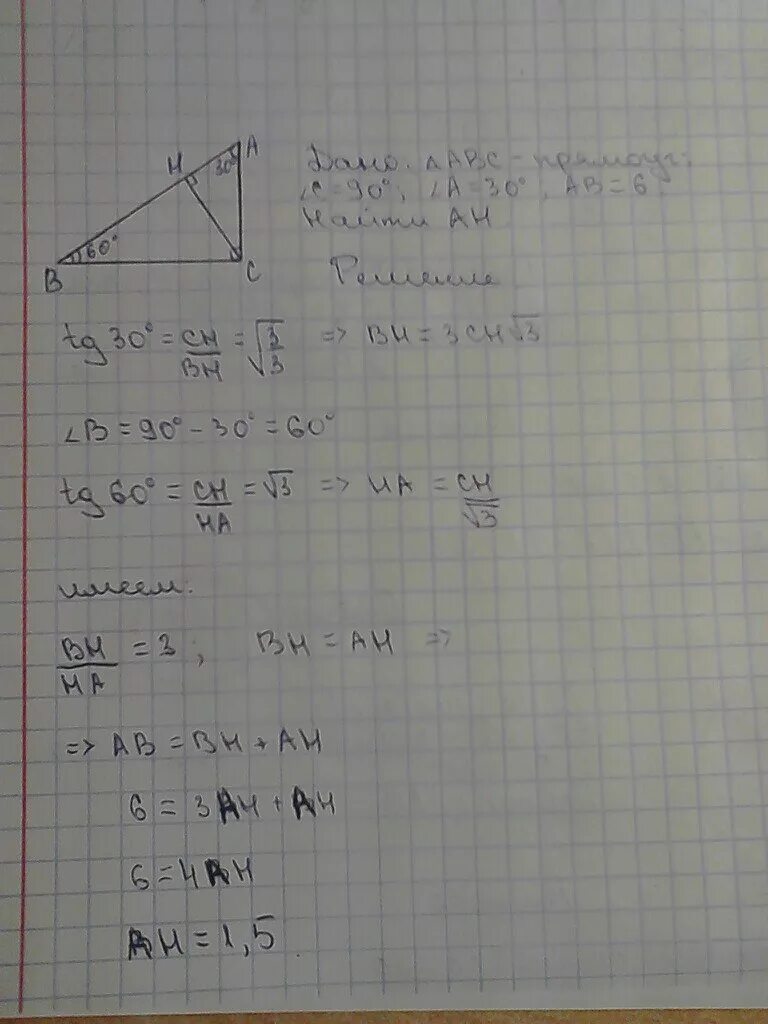 A
H
30°
60°
B
C
Дано: △ABC - прямоуг.
∠C=90°, ∠A=30°, AB=6.
Найти AH
Решение
tg 30° = CH/BH = √3/√3 => BH = 3CH√3
∠B = 90° - 30° = 60°
tg 60° = CH/HA = √3 => HA = CH/√3
имеем:
BH/HA = 3; BH = AH =>
=> AB = BH + AH
6 = 3AH + AH
6 = 4AH
AH = 1,5